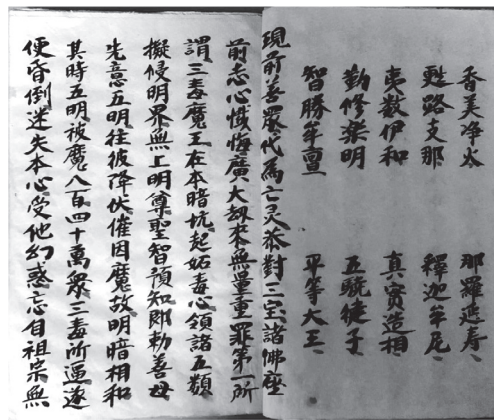 香美净 那羅延壽、
甦路支那 釋迦牟尼、
夷数伊和 真實造相、
勤修樂明 五驍徒子、
智勝牟亶 平等大王、
現前善眾代為亡灵恭對三宝諸佛座
前志心懺悔廣大劫來無量重罪第一所
謂三毒魔王在本暗坑起妬毒心領諸五類
擬侵明界無上明尊聖智預知即勅善母
先意五明往彼降伏催因魔故明暗相和
其時五明被魔八百四十萬衆三毒所逼遂
便昏倒迷失本心受他幻惑忘自祖宗無